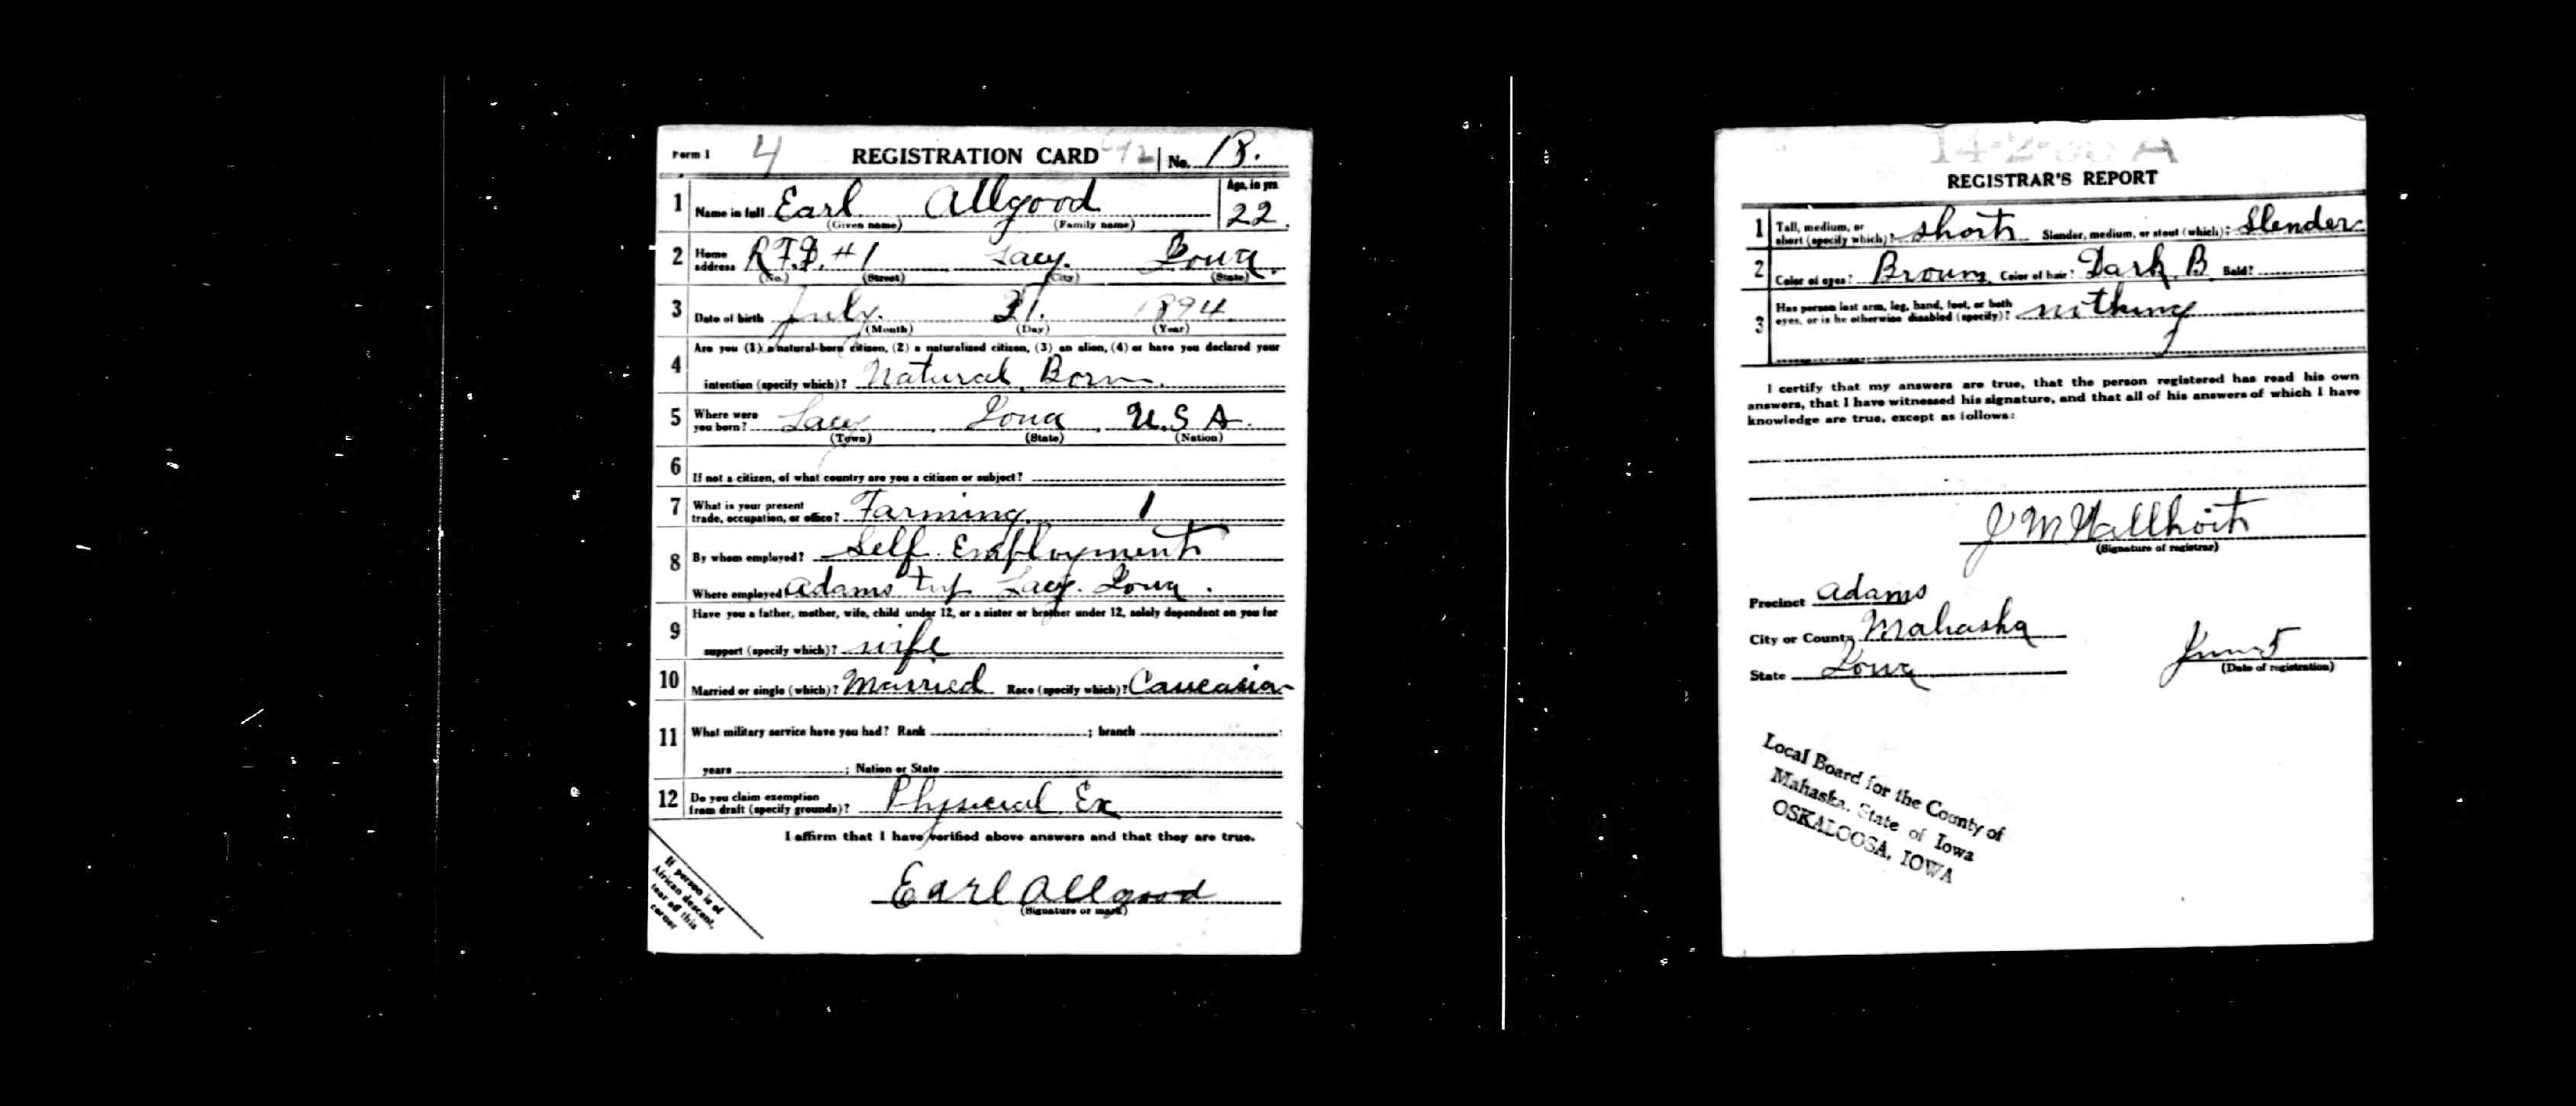 Form 1 4 REGISTRATION CARD No. 18.
1 Name in full Earl Allgood Age, in yrs 22.
(Given name) (Family name)
2 Home address R.F.D. #1 Lacy. Iowa.
(No.) (Street) (City) (State)
3 Date of birth July. 31. 1894
(Month) (Day) (Year)
4 Are you (1) a natural-born citizen, (2) a naturalized citizen, (3) an alien, (4) or have you declared your
intention (specify which)? Natural Born.
5 Where were you born? Lacy Iowa U.S A.
(Town) (State) (Nation)
6 If not a citizen, of what country are you a citizen or subject?
7 What is your present trade, occupation, or office? Farming. 1
8 By whom employed? Self Employment
Where employed Adams twp Lacy. Iowa.
9 Have you a father, mother, wife, child under 12, or a sister or brother under 12, solely dependent on you for
support (specify which)? wife
10 Married or single (which)? Married Race (specify which)? Caucasian
11 What military service have you had? Rank ; branch
years ; Nation or State
12 Do you claim exemption from draft (specify grounds)? Physical Ex
I affirm that I have verified above answers and that they are true.
Earl Allgood
(Signature or mark)
If person is of
African descent,
tear off this
corner
REGISTRAR'S REPORT
1 Tall, medium, or short (specify which)? short Slender, medium, or stout (which)? Slender
2 Color of eyes? Brown Color of hair? Dark B Bald?
3 Has person lost arm, leg, hand, foot, or both eyes, or is he otherwise disabled (specify)? nothing
I certify that my answers are true, that the person registered has read his own
answers, that I have witnessed his signature, and that all of his answers of which I have
knowledge are true, except as follows:
J M
(Signature of registrar)
Precinct Adams
City or County Mahaska
State Iowa
June 5
(Date of registration)
Local Board for the County of
Mahaska, State of Iowa
OSKALOOSA, IOWA